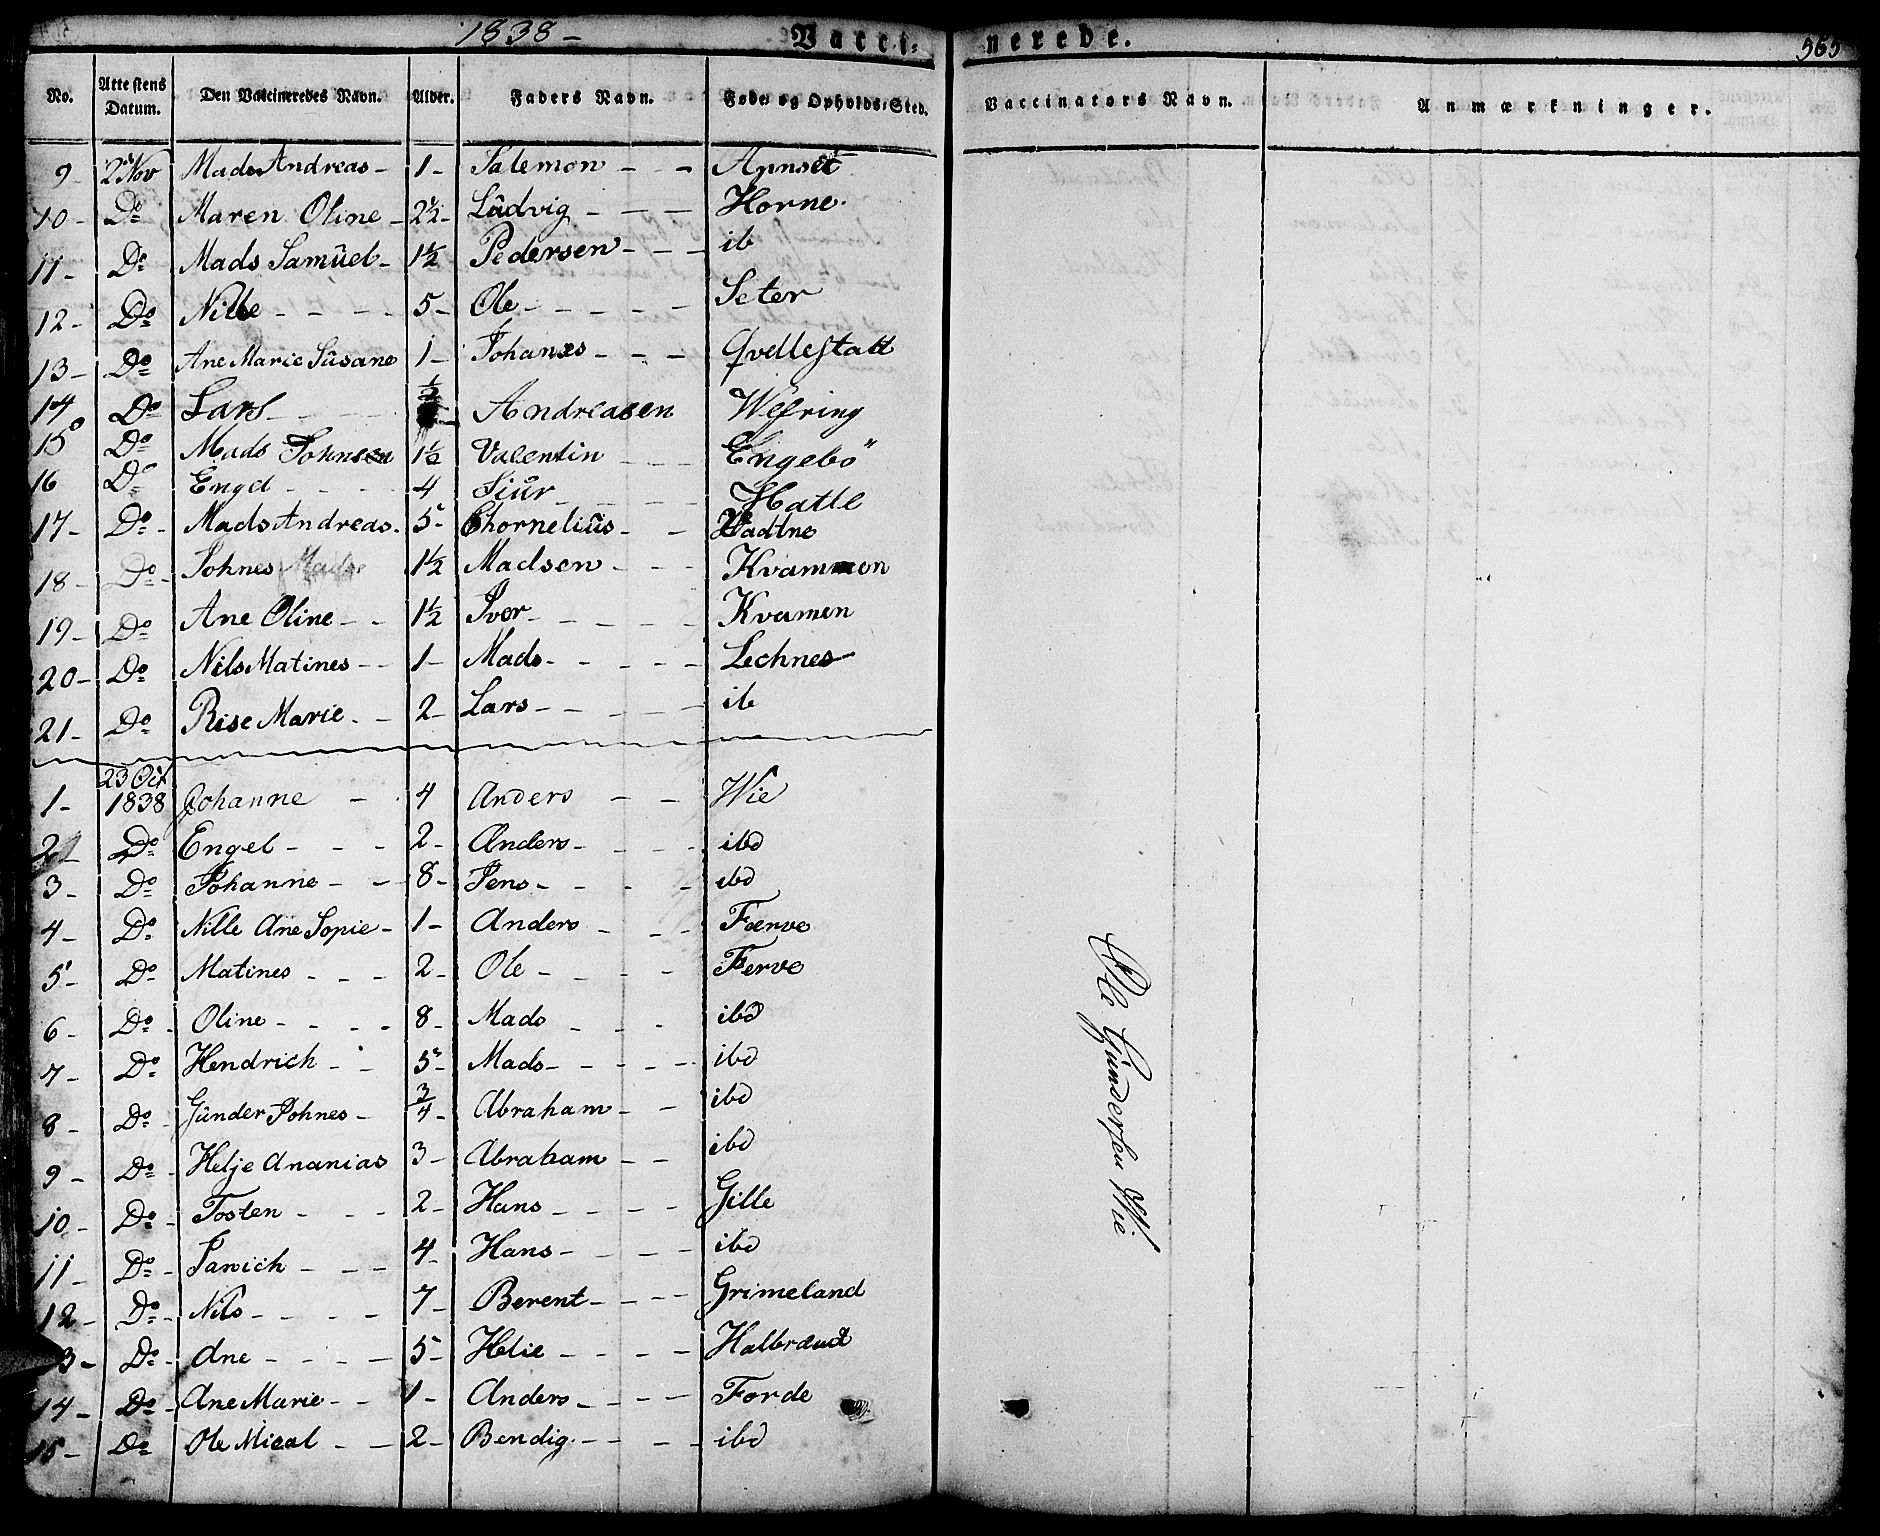 1838 - Vacci- nerede. 565
No. Attestens Datum. Den Vaccineredes Navn. Alder. Faders Navn. Føde- og Opholds-Sted. Vaccinators Navn. Anmærkninger.
9- 2 Nov Mads Andreas- 1- Salemon - - - Apnset
10- Do Maren Oline - 2½- Lüdvig - - - Horne.
11- Do Mads Samüel- 1½ Pedersen - - - ib
12- Do Nille - - - - 5- Ole - - - - - Seter
13- Do Ane Marie Süsane 1- Johanes - - - Qvellestatt
14 Do Lars - - - ½ Andreasen Wefring
15 Do Mads Johnsen 1½ Valentin - - - Engebö
16 Do Engel - - - 4 Siür - - - Hatle
17- Do- Mads Andreas- 5- Chornelius- - - Hadtne
18- Do- Johnes 1½ Madsen - - - Kvammen
19- Do Ane Oline - - 1½ Iver - - - - - Kvamen
20- Do Nils Matines - - 1- Mads - - - - - Lechnes
21- Do Rise Marie - - 2- Lars - - - - - ib
1- 23 Oct 1838 Johanne - - 4 Anders - - Wie
2 Do Engel - - - 2- Anders - - - - ibd
3- Do Johanne - - - 8- Jens - - - - ibd
4- Do Nille Ane Sopie - 1- Anders - - - Færve
5- Do Matines - - - 2- Ole - - - - Ferve
6- Do- Oline - - - - 8- Mads - - - ibd
7- Do- Hendrich - - - 5- Mads - - - - - ibd
8- Do- Günder Johnes - ¾- Abraham - - ibd
9- Do- Helje Ananias 3- Abraham - - ibd
10- Do- Tosten - - - 2- Hans - - - - Gille
11- Do- Janich - - - 4- Hans - - - - ibd
12- Do- Nils - - - - 7- Berent - - - - Grimeland
3- Do- Ane - - - - 5- Helie - - - - Halbrændt
14- Do- Ane Marie - - 1- Anders - - - - Forde
15- Do Ole Mical - - 2- Bendig - - - - ibd
Ole Gündersen Wie